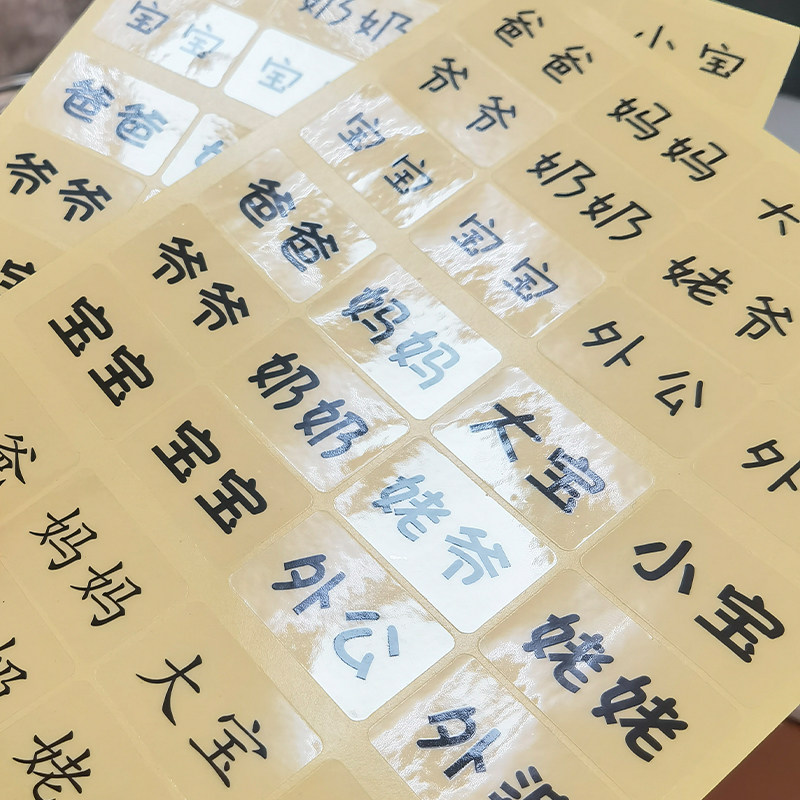 宝宝
奶奶
宝
爸爸
爷爷
爸爸
小宝
爷爷
妈妈
宝宝
奶奶
大
宝宝
姥爷
外公
外
爸爸
爷爷
妈妈
宝宝
奶奶
大宝
宝宝
姥爷
小宝
外公
姥姥
外婆
爸
妈妈
大宝
姥